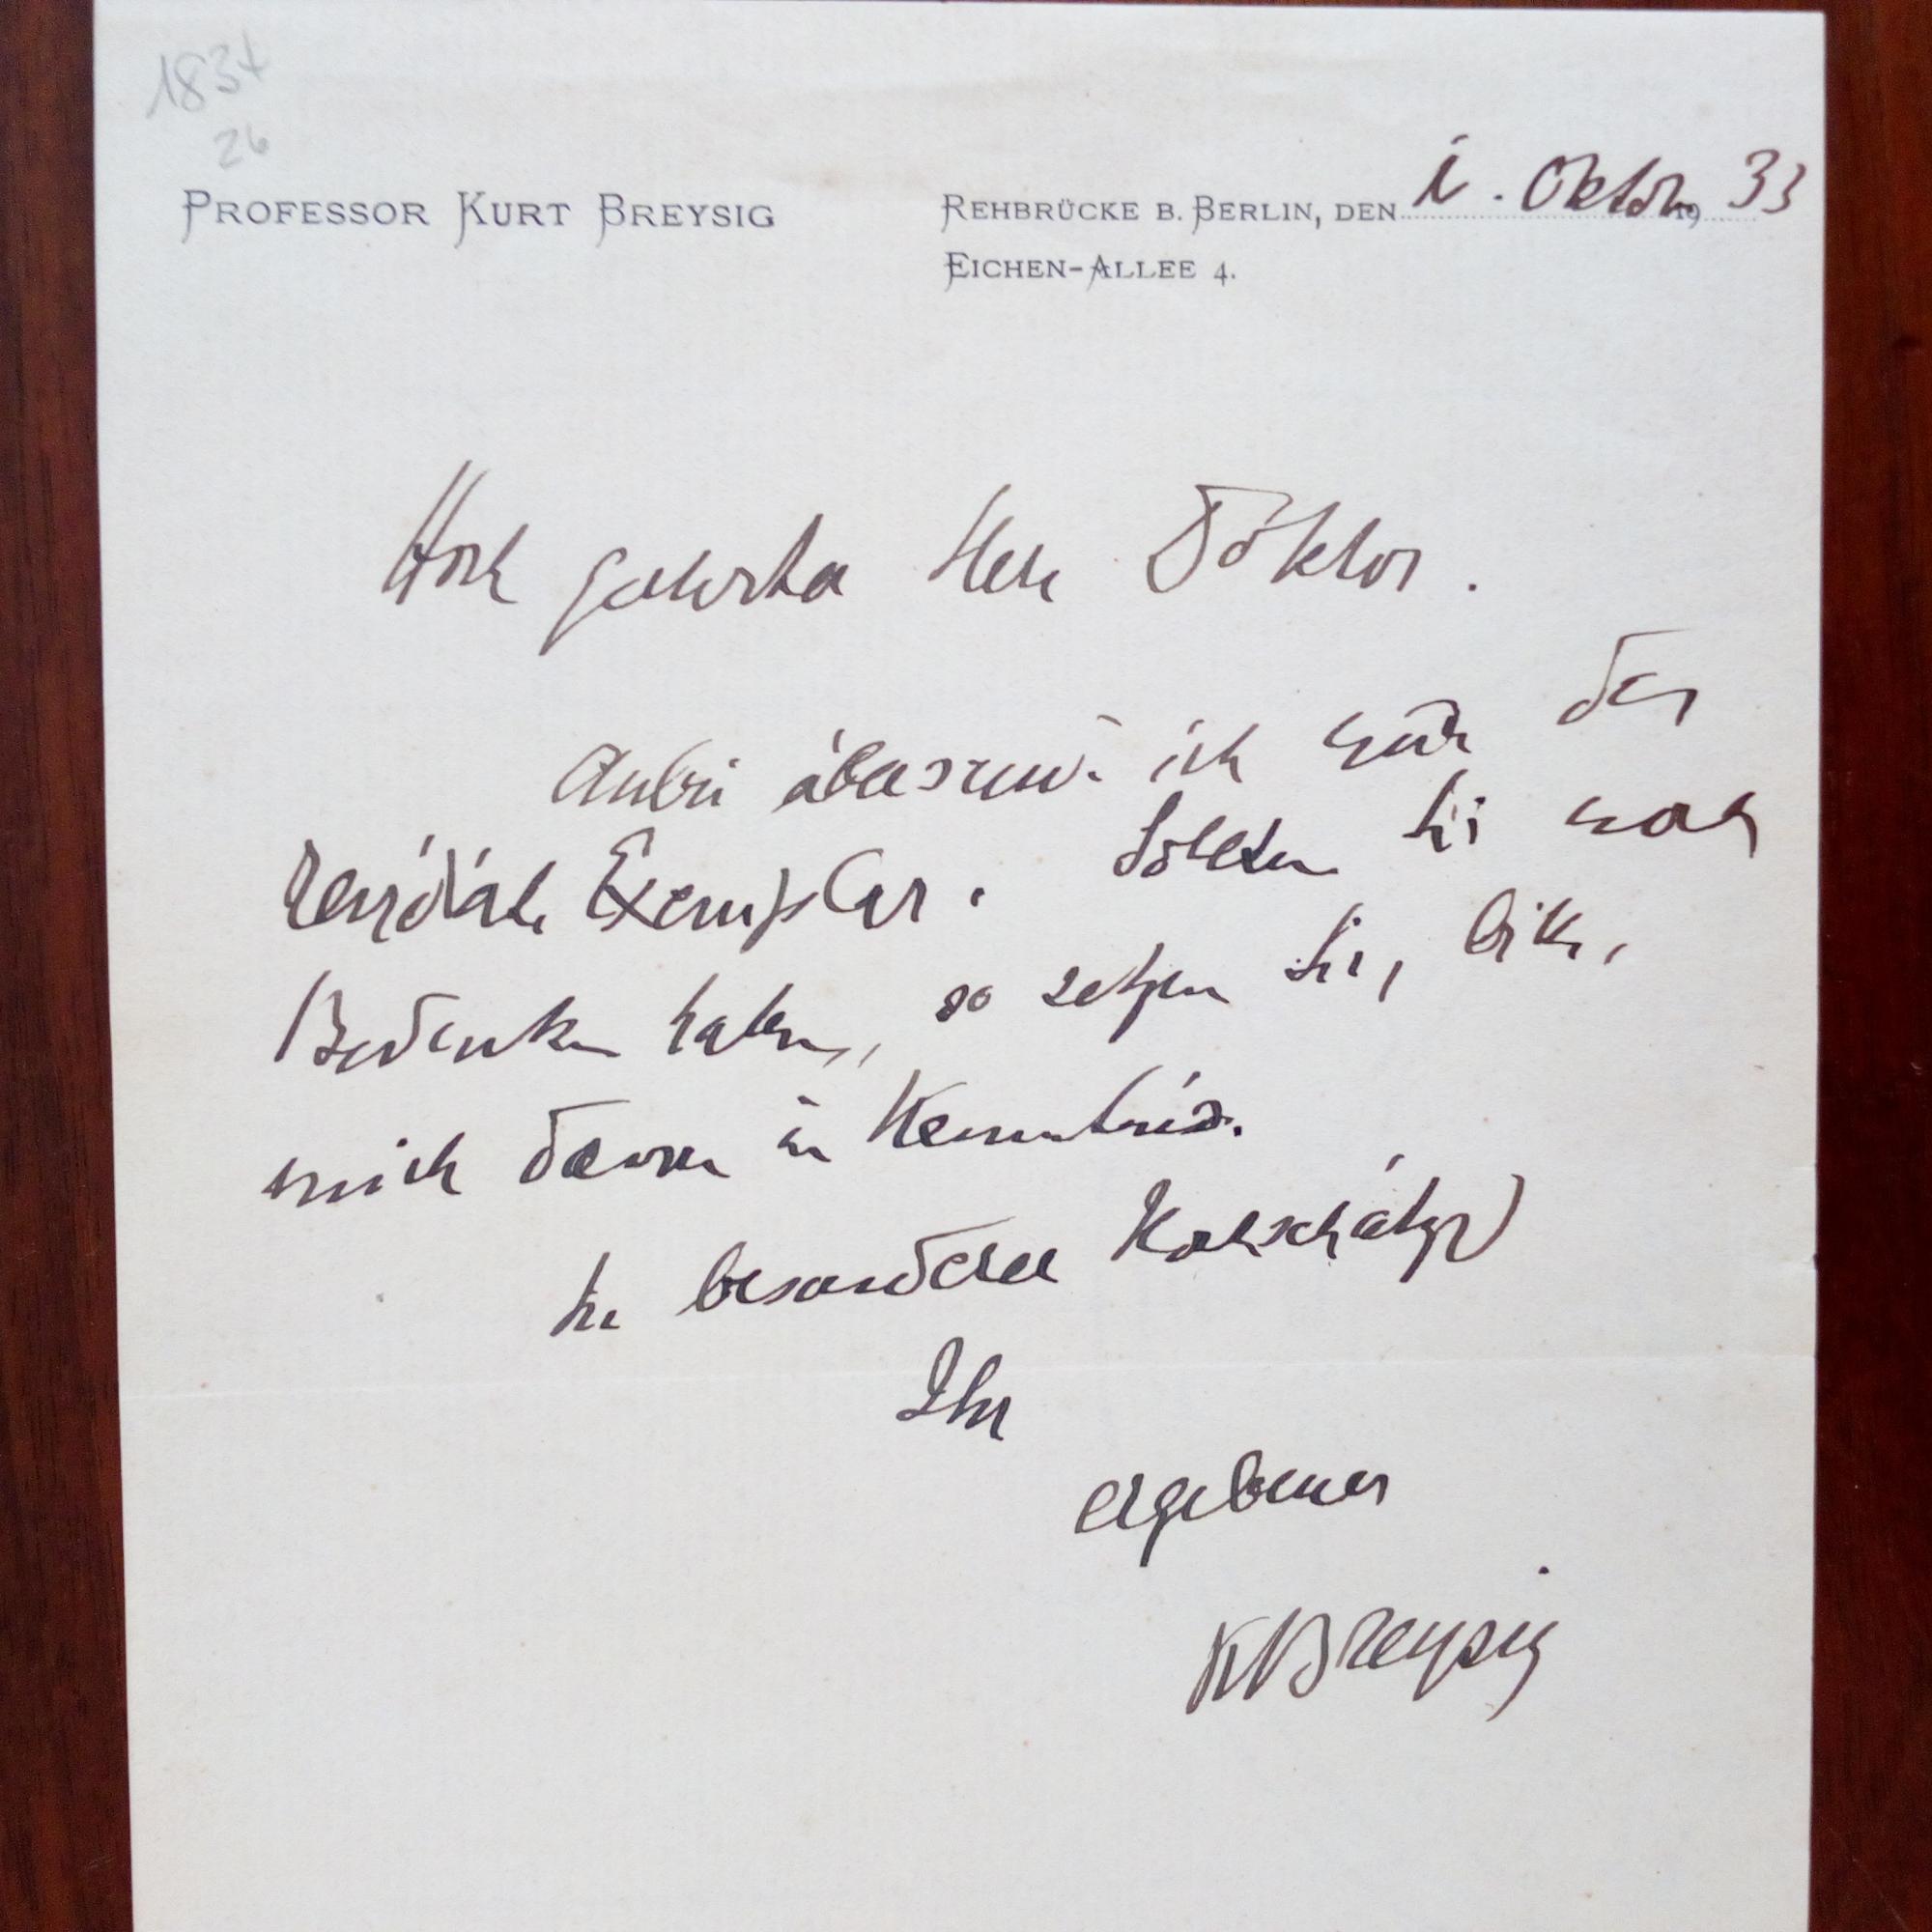 1837
26
PROFESSOR KURT BREYSIG
REHBRÜCKE B. BERLIN, DEN 1. Oktober 1933
EICHEN-ALLEE 4.
Hoch geehrter Herr Doktor.
Anbei übersende ich das
revidierte Exemplar. Sollten Sie noch
Bedenken haben, so setzen Sie, bitte,
mich davon in Kenntnis.
In besonderer Hochschätzung
Ihr
ergebener
KBreysig